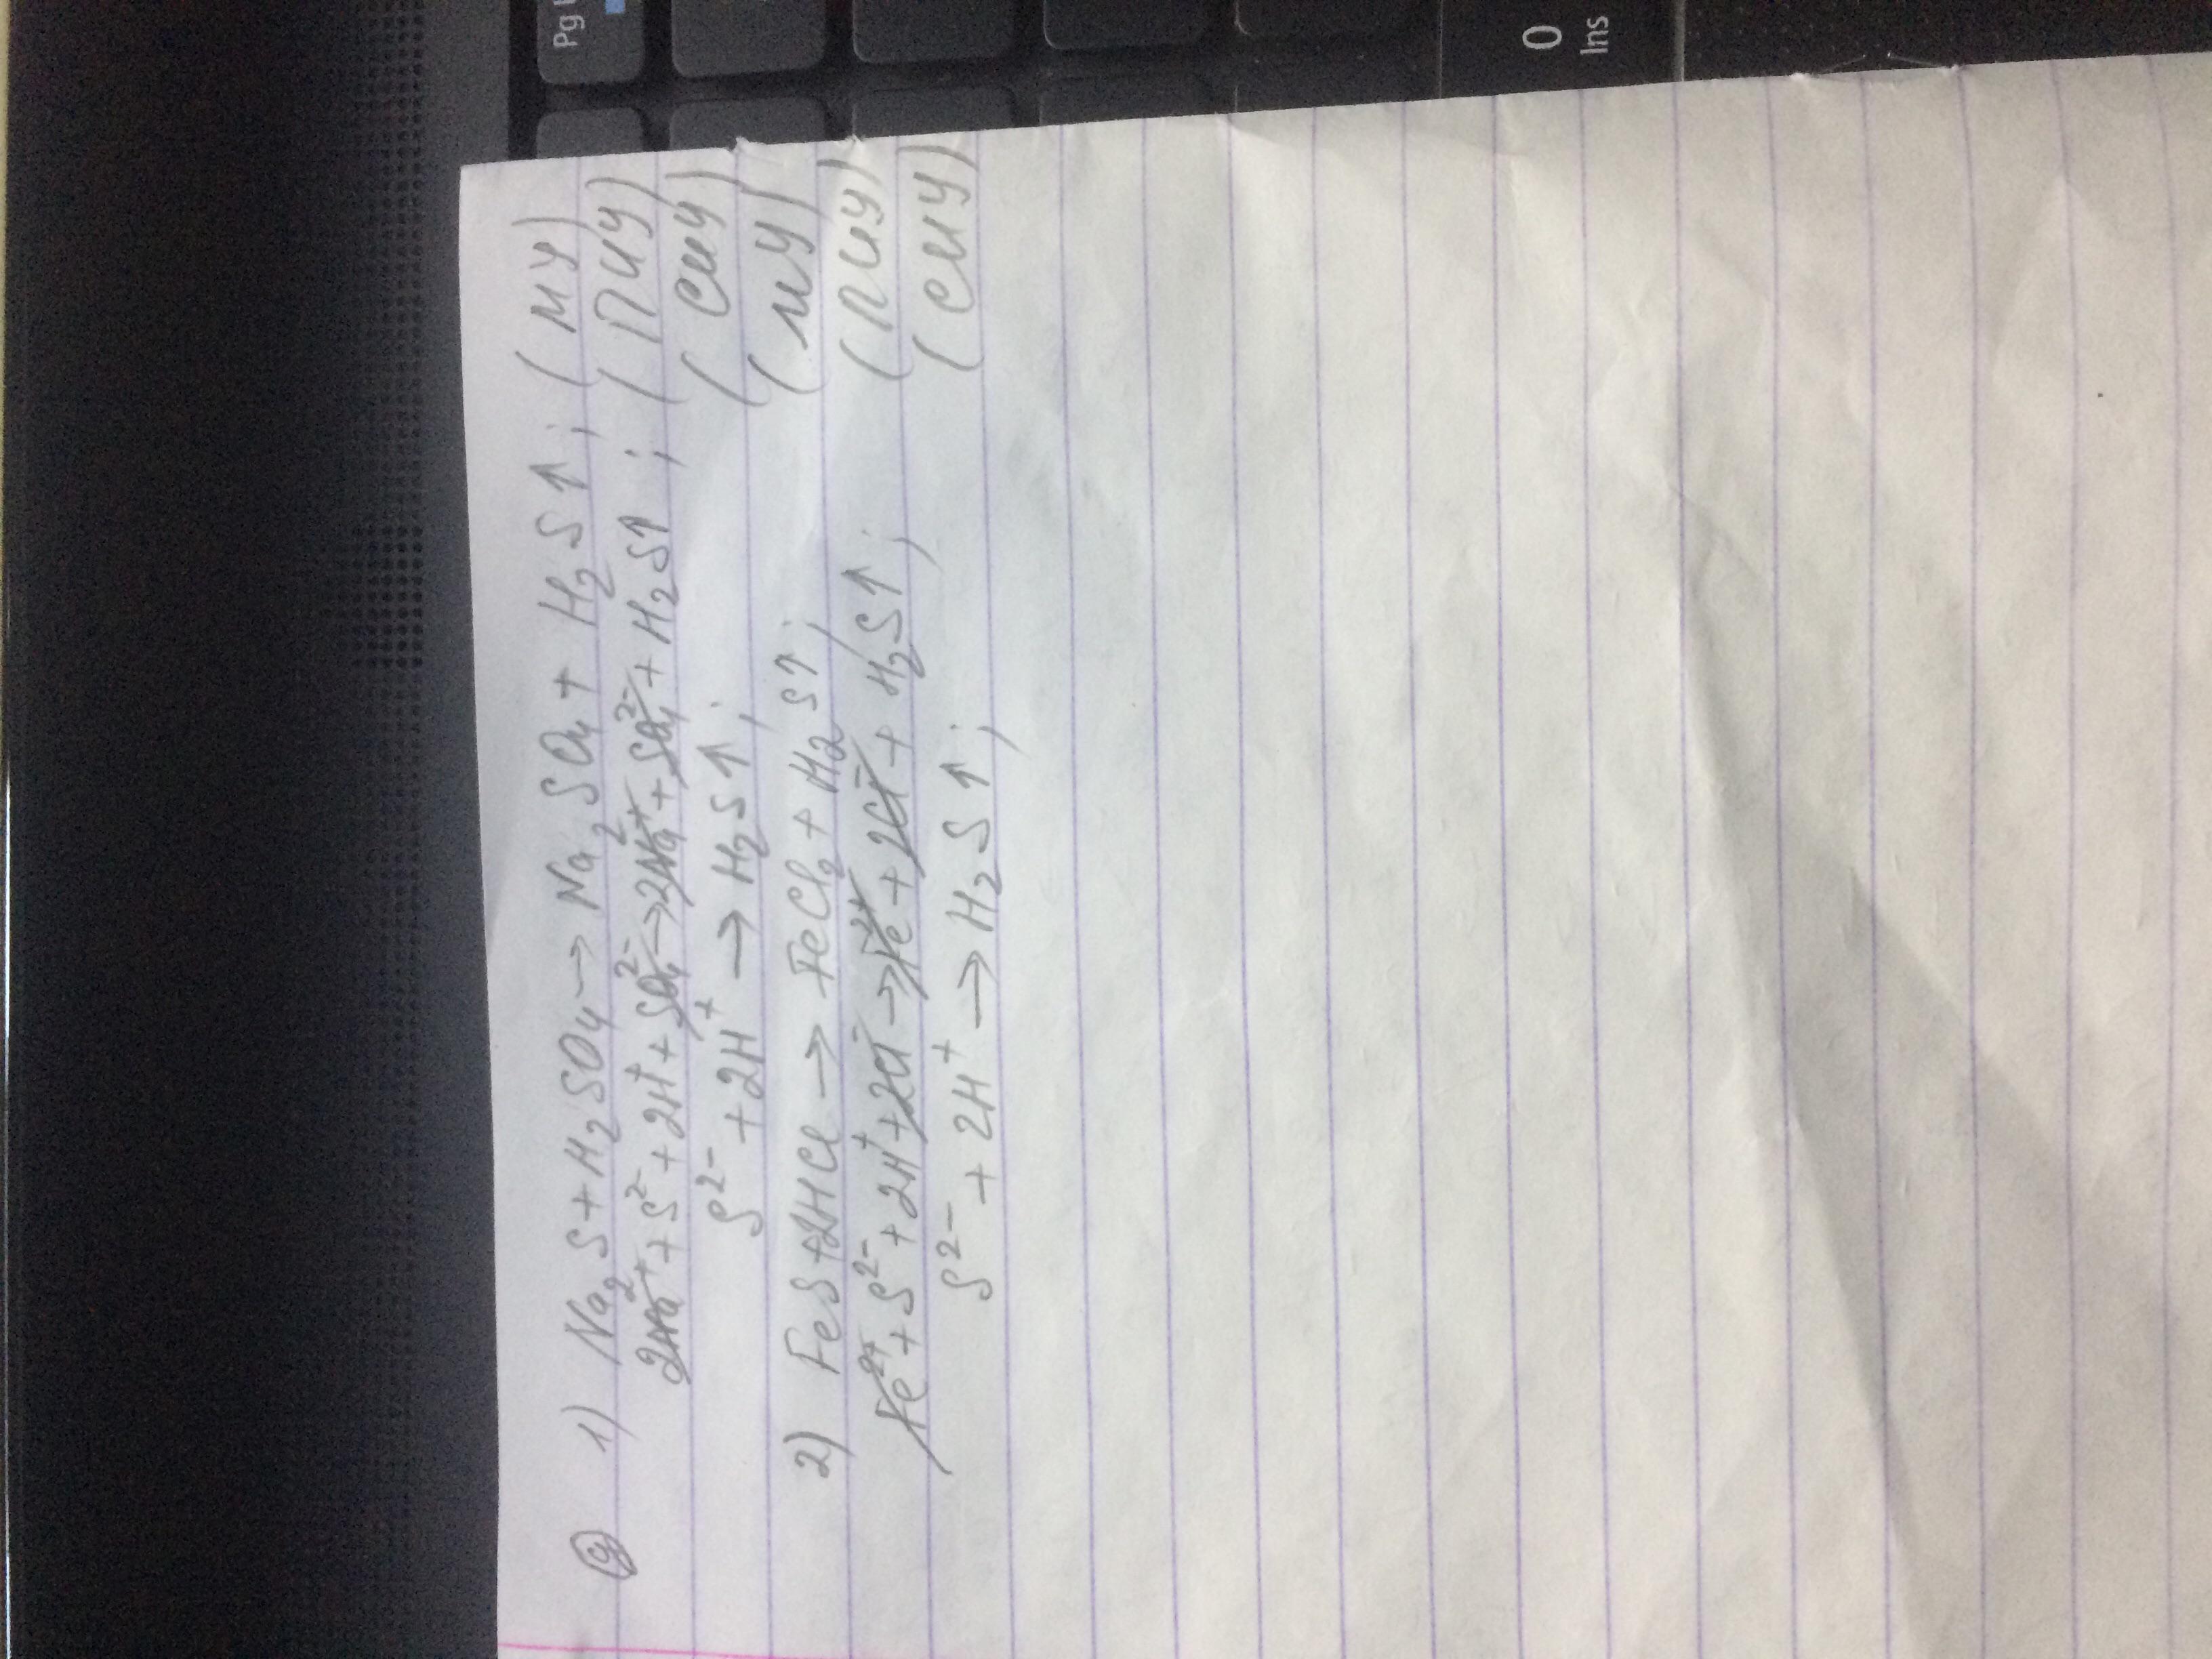 Pg
0
Ins
1) Na₂S + H₂SO₄ → Na₂SO₄ + H₂S↑; (МУ)
2Na⁺ + S²⁻ + 2H⁺ + SO₄²⁻ → 2Na⁺ + SO₄²⁻ + H₂S↑; (ПИУ)
S²⁻ + 2H⁺ → H₂S↑; (СИУ)
2) FeS + 2HCl → FeCl₂ + H₂S↑; (МУ)
Fe²⁺ + S²⁻ + 2H⁺ + 2Cl⁻ → Fe²⁺ + 2Cl⁻ + H₂S↑; (ПИУ)
S²⁻ + 2H⁺ → H₂S↑; (СИУ)